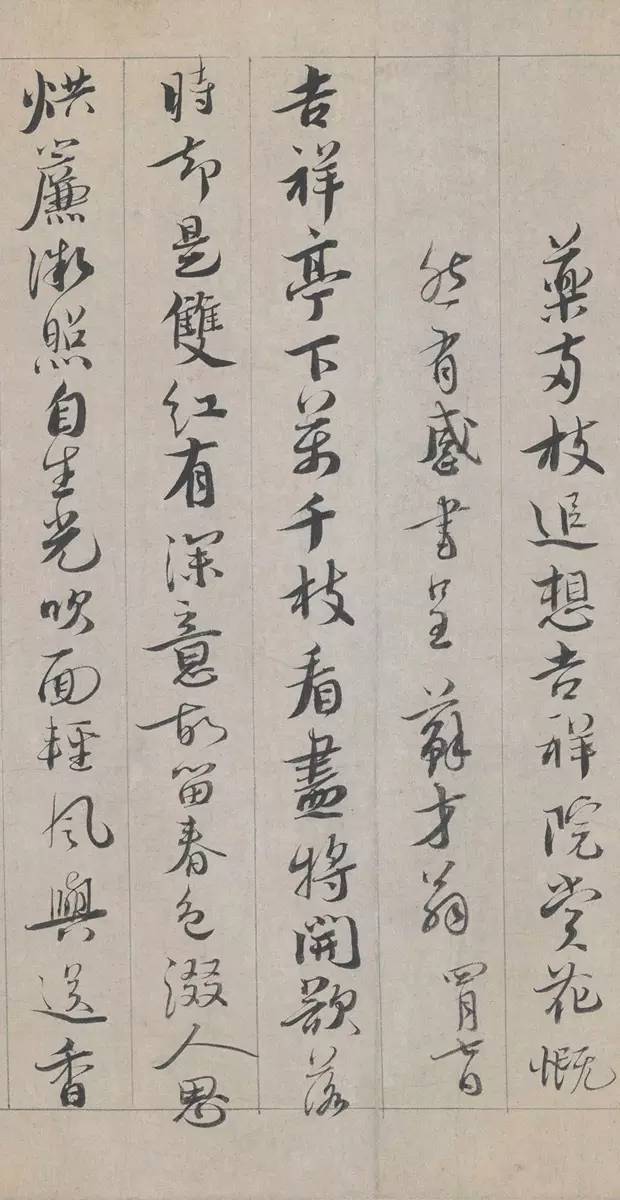 藥兩枝追想吉祥院賞花慨
然有感書呈蘇才翁 四月七日
吉祥亭下萬千枝看盡將開欲落
時却是雙紅有深意故留春色綴人思
烘簾微照自生光吹面輕風與送香